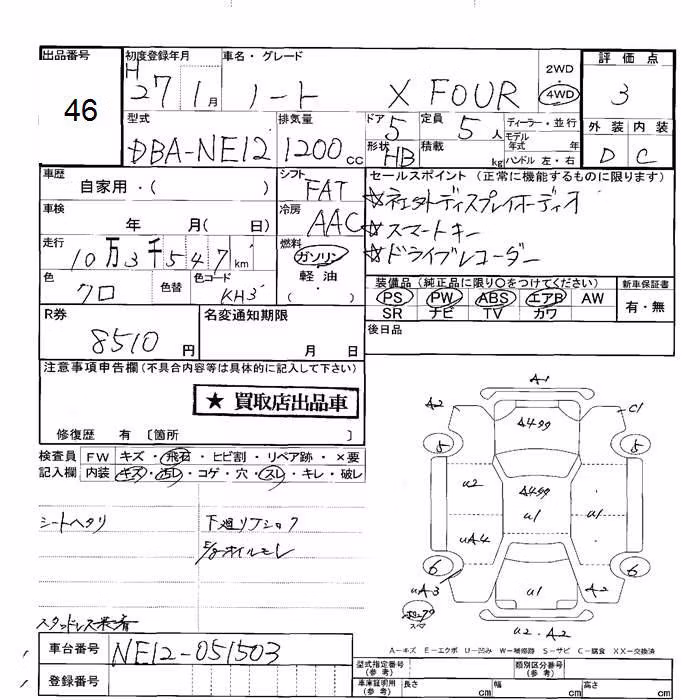 出品番号 初度登録年月 車名・グレード 評価点
46 H 27 1月 ノート X FOUR 2WD 4WD 3
型式 排気量 ドア 定員 ディーラー・並行 外装 内装
DBA-NE12 1200cc 5 5人 モデル年式 年 D C
形状 HB 積載 kg ハンドル 左・右
車歴 シフト セールスポイント (正常に機能するものに限ります)
自家用・( ) FAT ☆社外ディスプレイオーディオ
車検 冷房 ☆スマートキー
年 月( 日) AAC ☆ドライブレコーダー
走行 燃料
10万3千547km ガソリン
軽油
・( )
色 色替 色コード 装備品 (純正品に限り○をつけてください) 新車保証書
クロ KH3 PS PW ABS エアB AW 有・無
SR ナビ TV カワ
R券 名変通知期限 後日品
8510円 月 日
注意事項申告欄(不具合内容等は具体的に記入して下さい)
★ 買取店出品車
修復歴 有 〔箇所 〕
検査員 FW キズ・飛石・ヒビ割・リペア跡・×要
記入欄 内装 キズ・汚れ・コゲ・穴・スレ・キレ・破レ
シートヘタリ 下廻りフショク
E/gオイルモレ
スタッドレス装着
A1
A2 C1
A499
5 5
U2 A499
U1 U1
UA4
6 6
UA3 U1 A2
U2.A2
A-キズ E-エクボ U-凹み W-補修跡 S-サビ C-腐食 XX-交換済
車台番号 NE12-051503
登録番号
型式指定番号(参考) 類別区分番号(参考)
車庫証明用(参考) 長さ cm 幅 cm 高さ cm